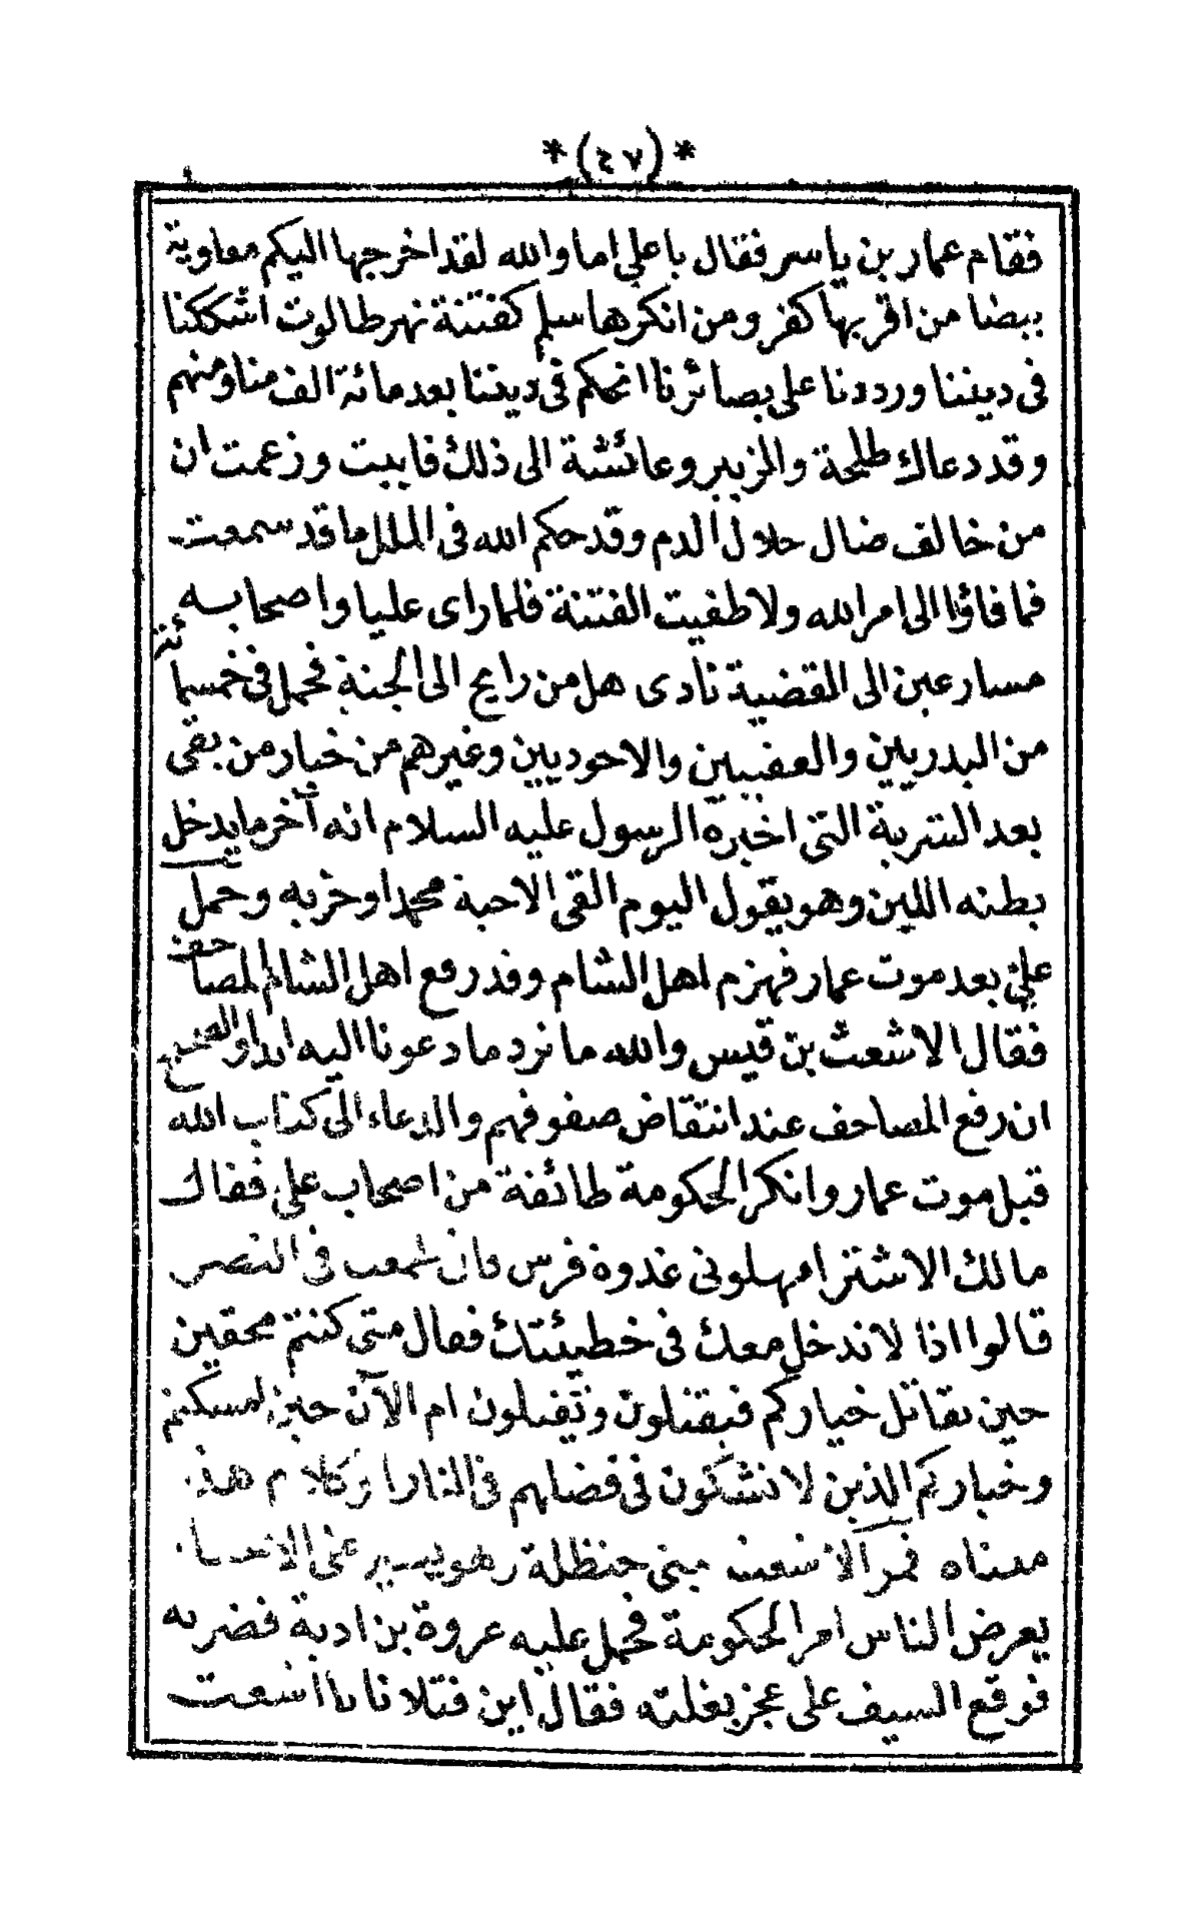 *(٤٧)*
فقام عمار بن ياسر فقال يا علي اما والله لقد اخرجها اليكم معاوية
بيضا من اقر بها كفر ومن انكرها سلم كفتنة نهر طالوت اشككنا
في ديننا ورددنا على بصائرنا انحكم في ديننا بعد مائة الف منا ومنهم
وقد دعاك طلحة والزبير وعائشة الى ذلك فابيت وزعمت ان
من خالف ضال حلال الدم وقد حكم الله في الملل ما قد سمعت
فما فاؤا الى امر الله ولا طفيت الفتنة فلما راى عليا واصحابه
مسارعين الى القضية نادى هل من رايح الى الجنة فحمل في خمسمائة
من البدريين والعقبيين والاحوديين وغيرهم من خيار من بقى
بعد الشربة التي اخبره الرسول عليه السلام انه آخر ما يدخل
بطنه اللبن وهو يقول اليوم القى الاحبة محمدا وحزبه وحمل
علي بعد موت عمار فهزم اهل الشام وقد رفع اهل الشام المصاحف
فقال الاشعث بن قيس والله ما نرد ما دعونا اليه ابدا والصحيح
ان رفع المصاحف عند انتقاض صفوفهم والدعاء الى كتاب الله
قبل موت عمار وانكر الحكومة طائفة من اصحاب علي فقال
مالك الاشتر امهلوني غدوة فرس فان طمعت في النصر
قالوا اذا لا ندخل معك في خطيئتك فقال متى كنتم محقين
حين نقاتل خياركم فيقتلون وتقتلون ام الآن حين امسكتم
وخياركم الذين لا تشكون في فضلهم في النار او كلام هذا
معناه فمر الاشعث ببني حنظلة وهو يسير على الاحياء
يعرض الناس امر الحكومة فحمل عليه عروة بن ادية فضربه
فوقع السيف على عجز بغلته فقال اين قتلانا يا اشعث